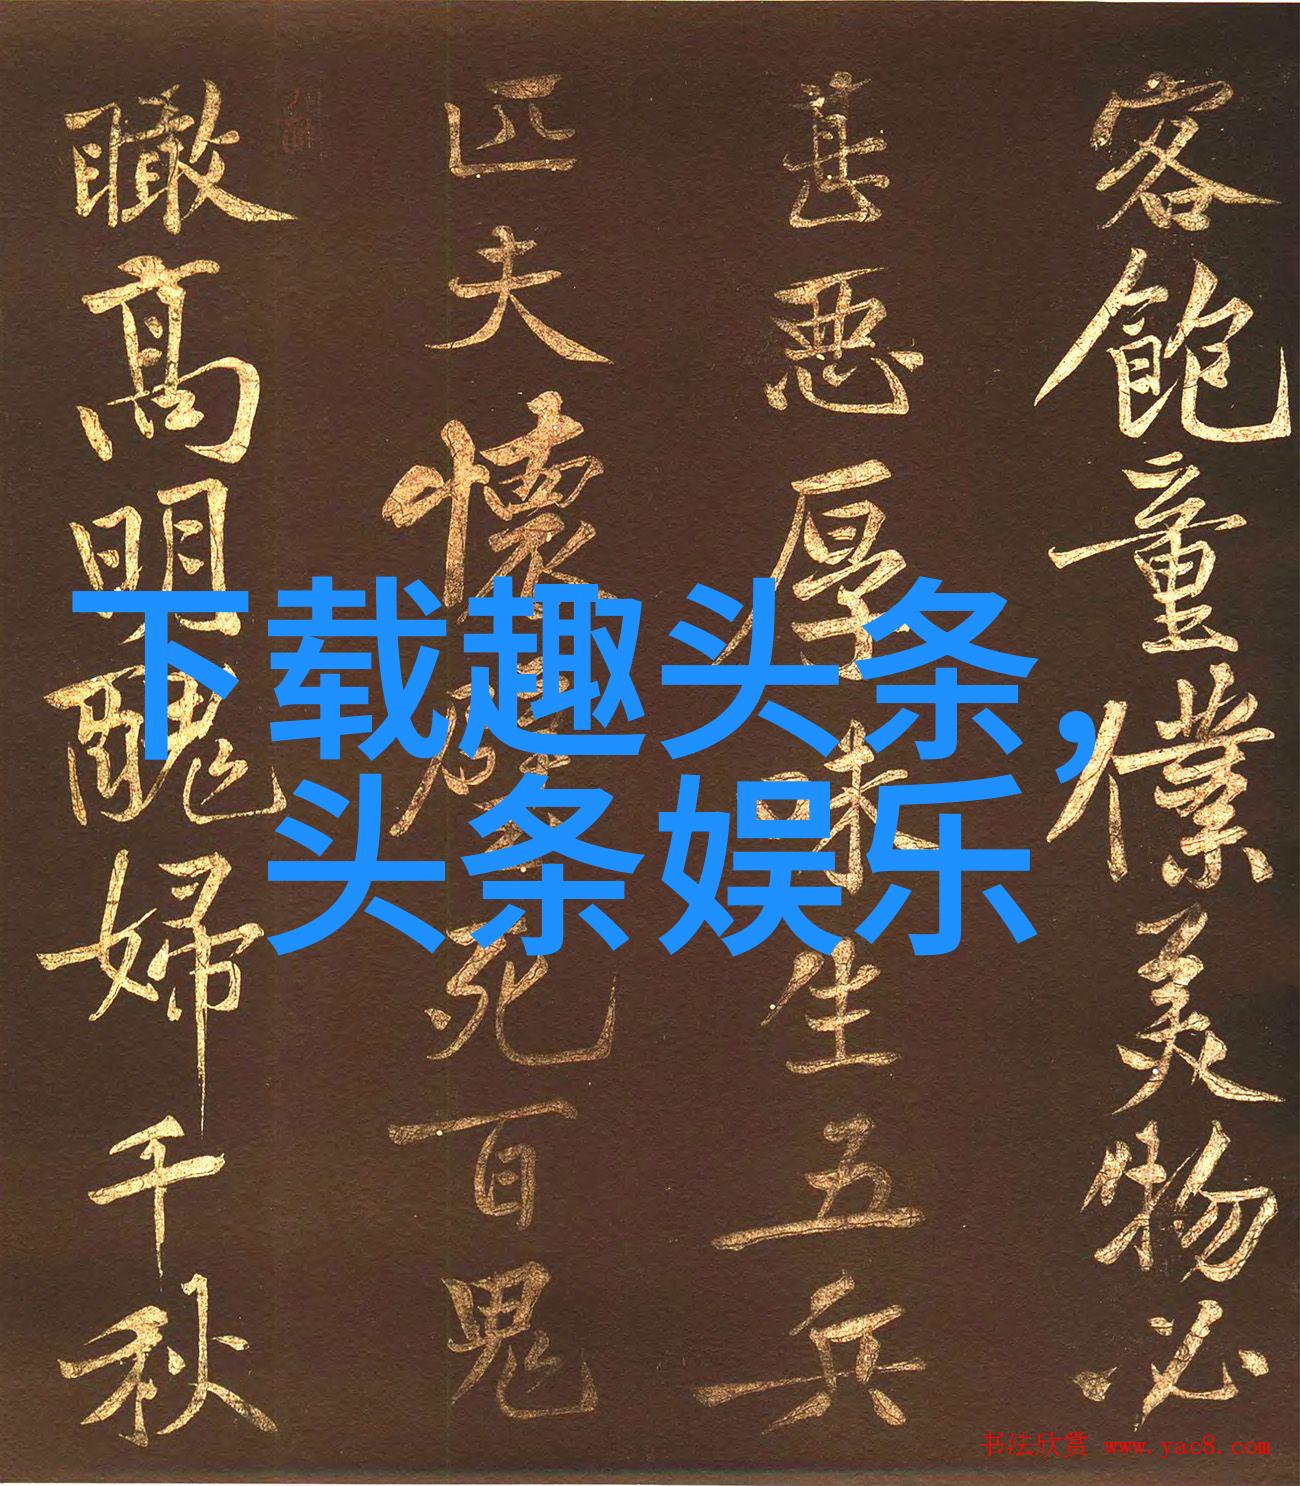 客飽童僕美物必
甚惡厚味生五兵
匹夫懷璧死百鬼
瞰高明醜婦千秋
下载趣头条，
头条娱乐
书法欣赏 www.yac8.com